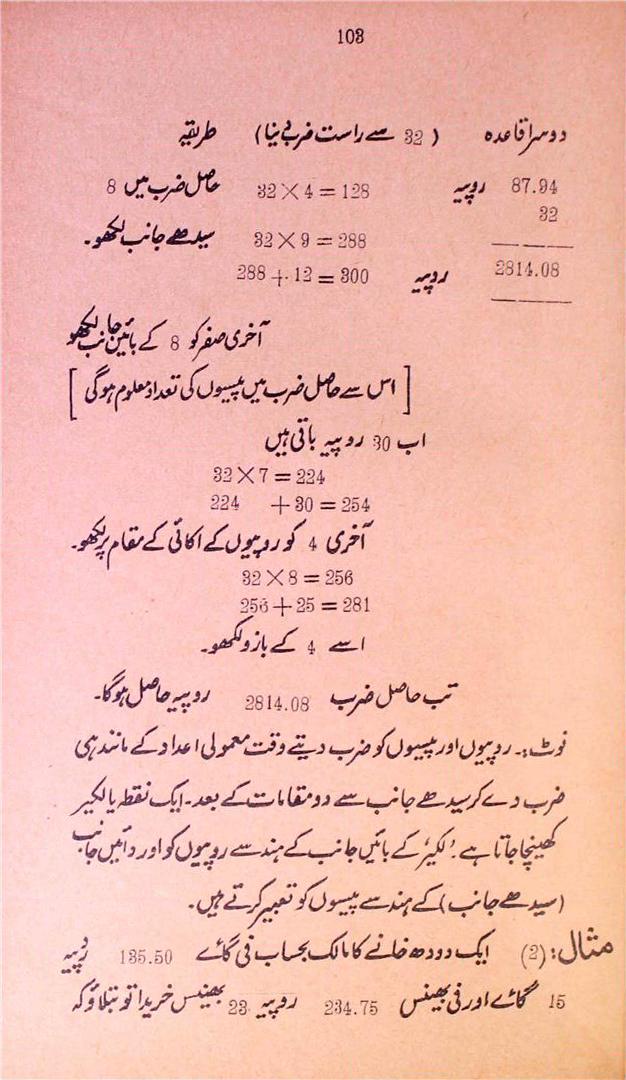 103
دوسرا قاعدہ ( 32 سے راست ضرب دینا ) طریقہ
87.94 روپیہ 32 × 4 = 128 حاصل ضرب میں 8
32
32 × 9 = 288 سیدھے جانب لکھو۔
2814.08 روپیہ 288 + 12 = 300
آخری صفر کو 8 کے بائیں جانب لکھو
[ اس سے حاصل ضرب میں پیسوں کی تعداد معلوم ہوگی ]
اب 30 روپیہ باقی ہیں
32 × 7 = 224
224 + 30 = 254
آخری 4 کو روپیوں کے اکائی کے مقام پر لکھو۔
32 × 8 = 256
256 + 25 = 281
اسے 4 کے بازو لکھو۔
تب حاصل ضرب 2814.08 روپیہ حاصل ہوگا۔
نوٹ:۔ روپیوں اور پیسوں کو ضرب دیتے وقت معمولی اعداد کے مانند ہی
ضرب دے کر سیدھے جانب سے دو مقامات کے بعد۔ ایک نقطہ یا لکیر
کھینچا جاتا ہے۔ 'لکیر' کے بائیں جانب کے ہندسے روپیوں کو اور دائیں جانب
(سیدھے جانب) کے ہندسے پیسوں کو تعبیر کرتے ہیں۔
مثال: (2) ایک دودھ خانے کا مالک بحساب فی گائے 135.50 روپیہ
15 گائے اور فی بھینس 234.75 روپیہ 23 بھینس خریدا تو بتلاؤ کہ